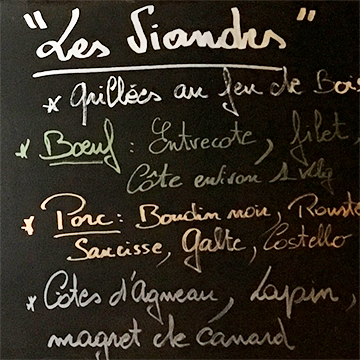 "Les Viandes"
* Grillées au feu de Bois
* Bœuf : Entrecote, filet,
Côte environ 1 Kg
* Porc : Boudin noir, Rouste
Saucisse, Galte, Costello
* Côtes d'Agneau, Lapin,
magret de canard